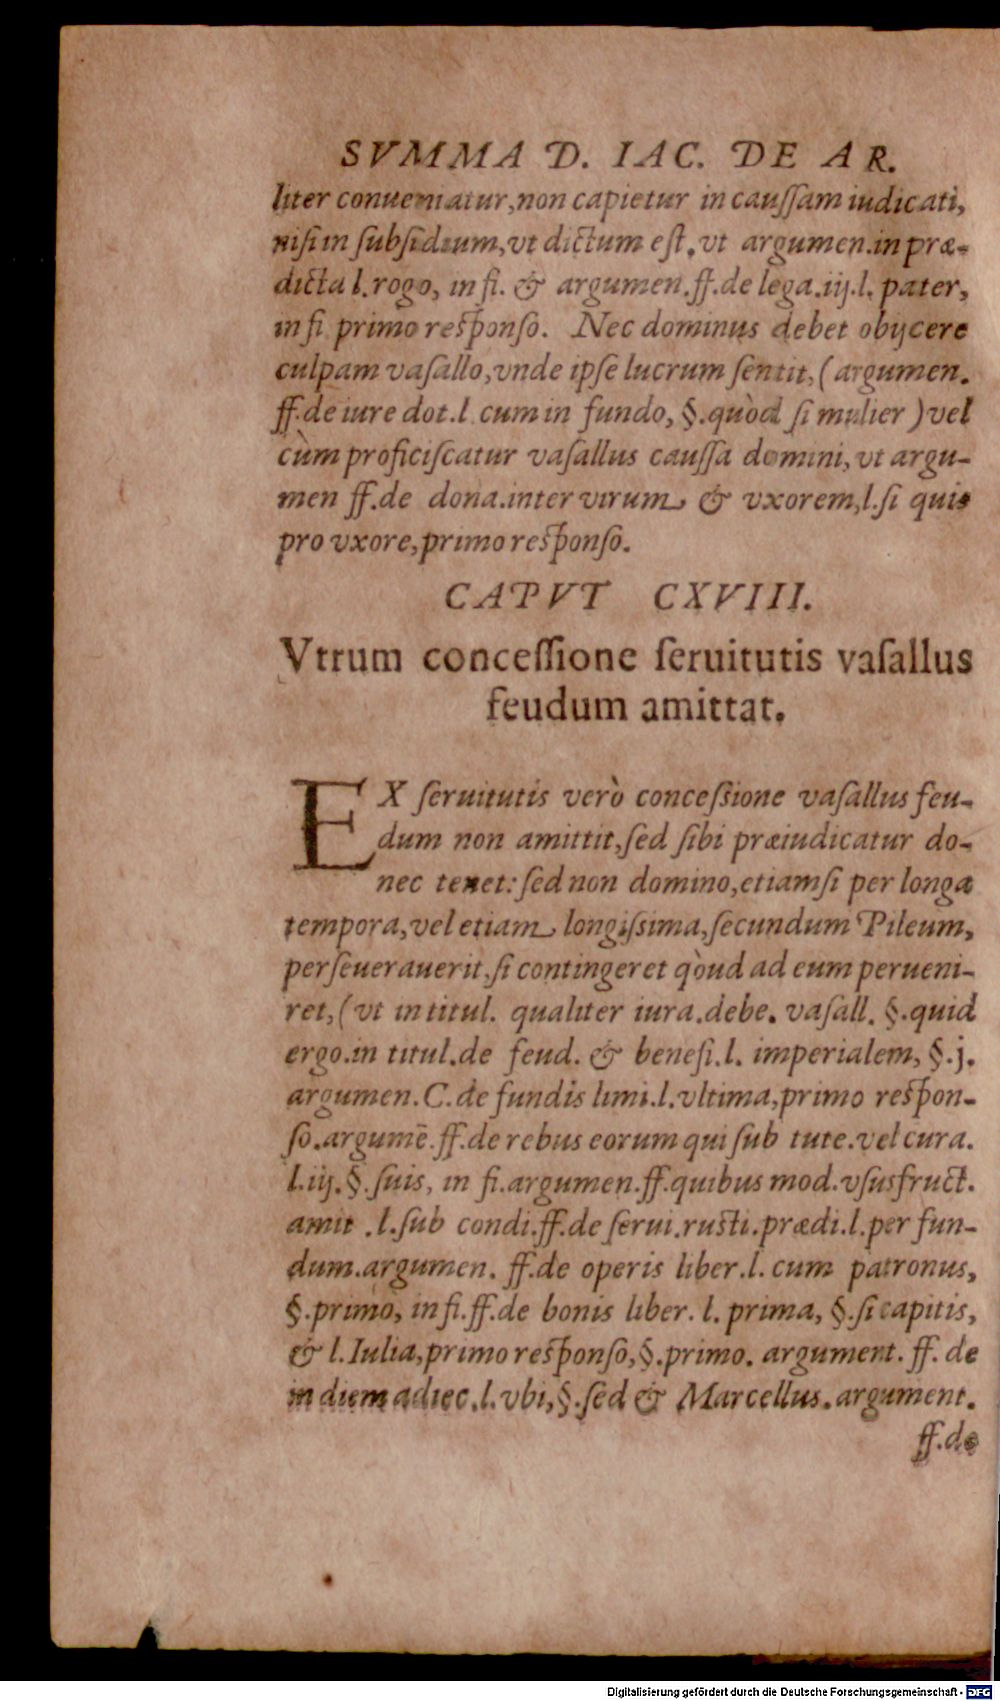 SVMMA D. IAC. DE AR.
liter conueniatur,non capietur in cauſſam iudicati,
niſi in ſubſidium,vt dictum eſt.vt argumen.in præ-
dicta l.rogo, in fi. & argumen.ff.de lega.iij.l. pater,
in fi primo reſponſo. Nec dominus debet obijcere
culpam vaſallo,vnde ipſe lucrum ſentit,( argumen.
ff.de iure dot.l cum in fundo, §.quòd ſi mulier ) vel
cùm proficiſcatur vaſallus cauſſa domini,vt argu-
men ff.de dona.inter virum & vxorem,l.ſi quis
pro vxore,primo reſponſo.
CAPVT CXVIII.
Vtrum conceſſione ſeruitutis vaſallus
feudum amittat.
EX ſeruitutis verò conceſsione vaſallus feu-
dum non amittit,ſed ſibi præiudicatur do-
nec tenet: ſed non domino,etiamſi per longa
tempora,vel etiam longiſsima,ſecundum Pileum,
perſeuerauerit,ſi contingeret qòud ad eum perueni-
ret,(vt in titul. qualiter iura.debe. vaſall. §.quid
ergo.in titul.de feud. & benefi.l. imperialem, §.j.
argumen.C.de fundis limi.l.vltima,primo reſpon-
ſo.argumē.ff.de rebus eorum qui ſub tute.vel cura.
l.iij.§.ſuis, in fi.argumen.ff.quibus mod.vſusfruct.
amit .l.ſub condi.ff.de ſerui.ruſti.prædi.l.per fun-
dum.argumen. ff.de operis liber.l. cum patronus,
§.primo, in fi.ff.de bonis liber. l. prima, §.ſi capitis,
& l.Iulia,primo reſponſo,§.primo. argument. ff. de
in diem adiec.l.vbi,§.ſed & Marcellus.argument.
ff.de
Digitalisierung gefördert durch die Deutsche Forschungsgemeinschaft - DFG